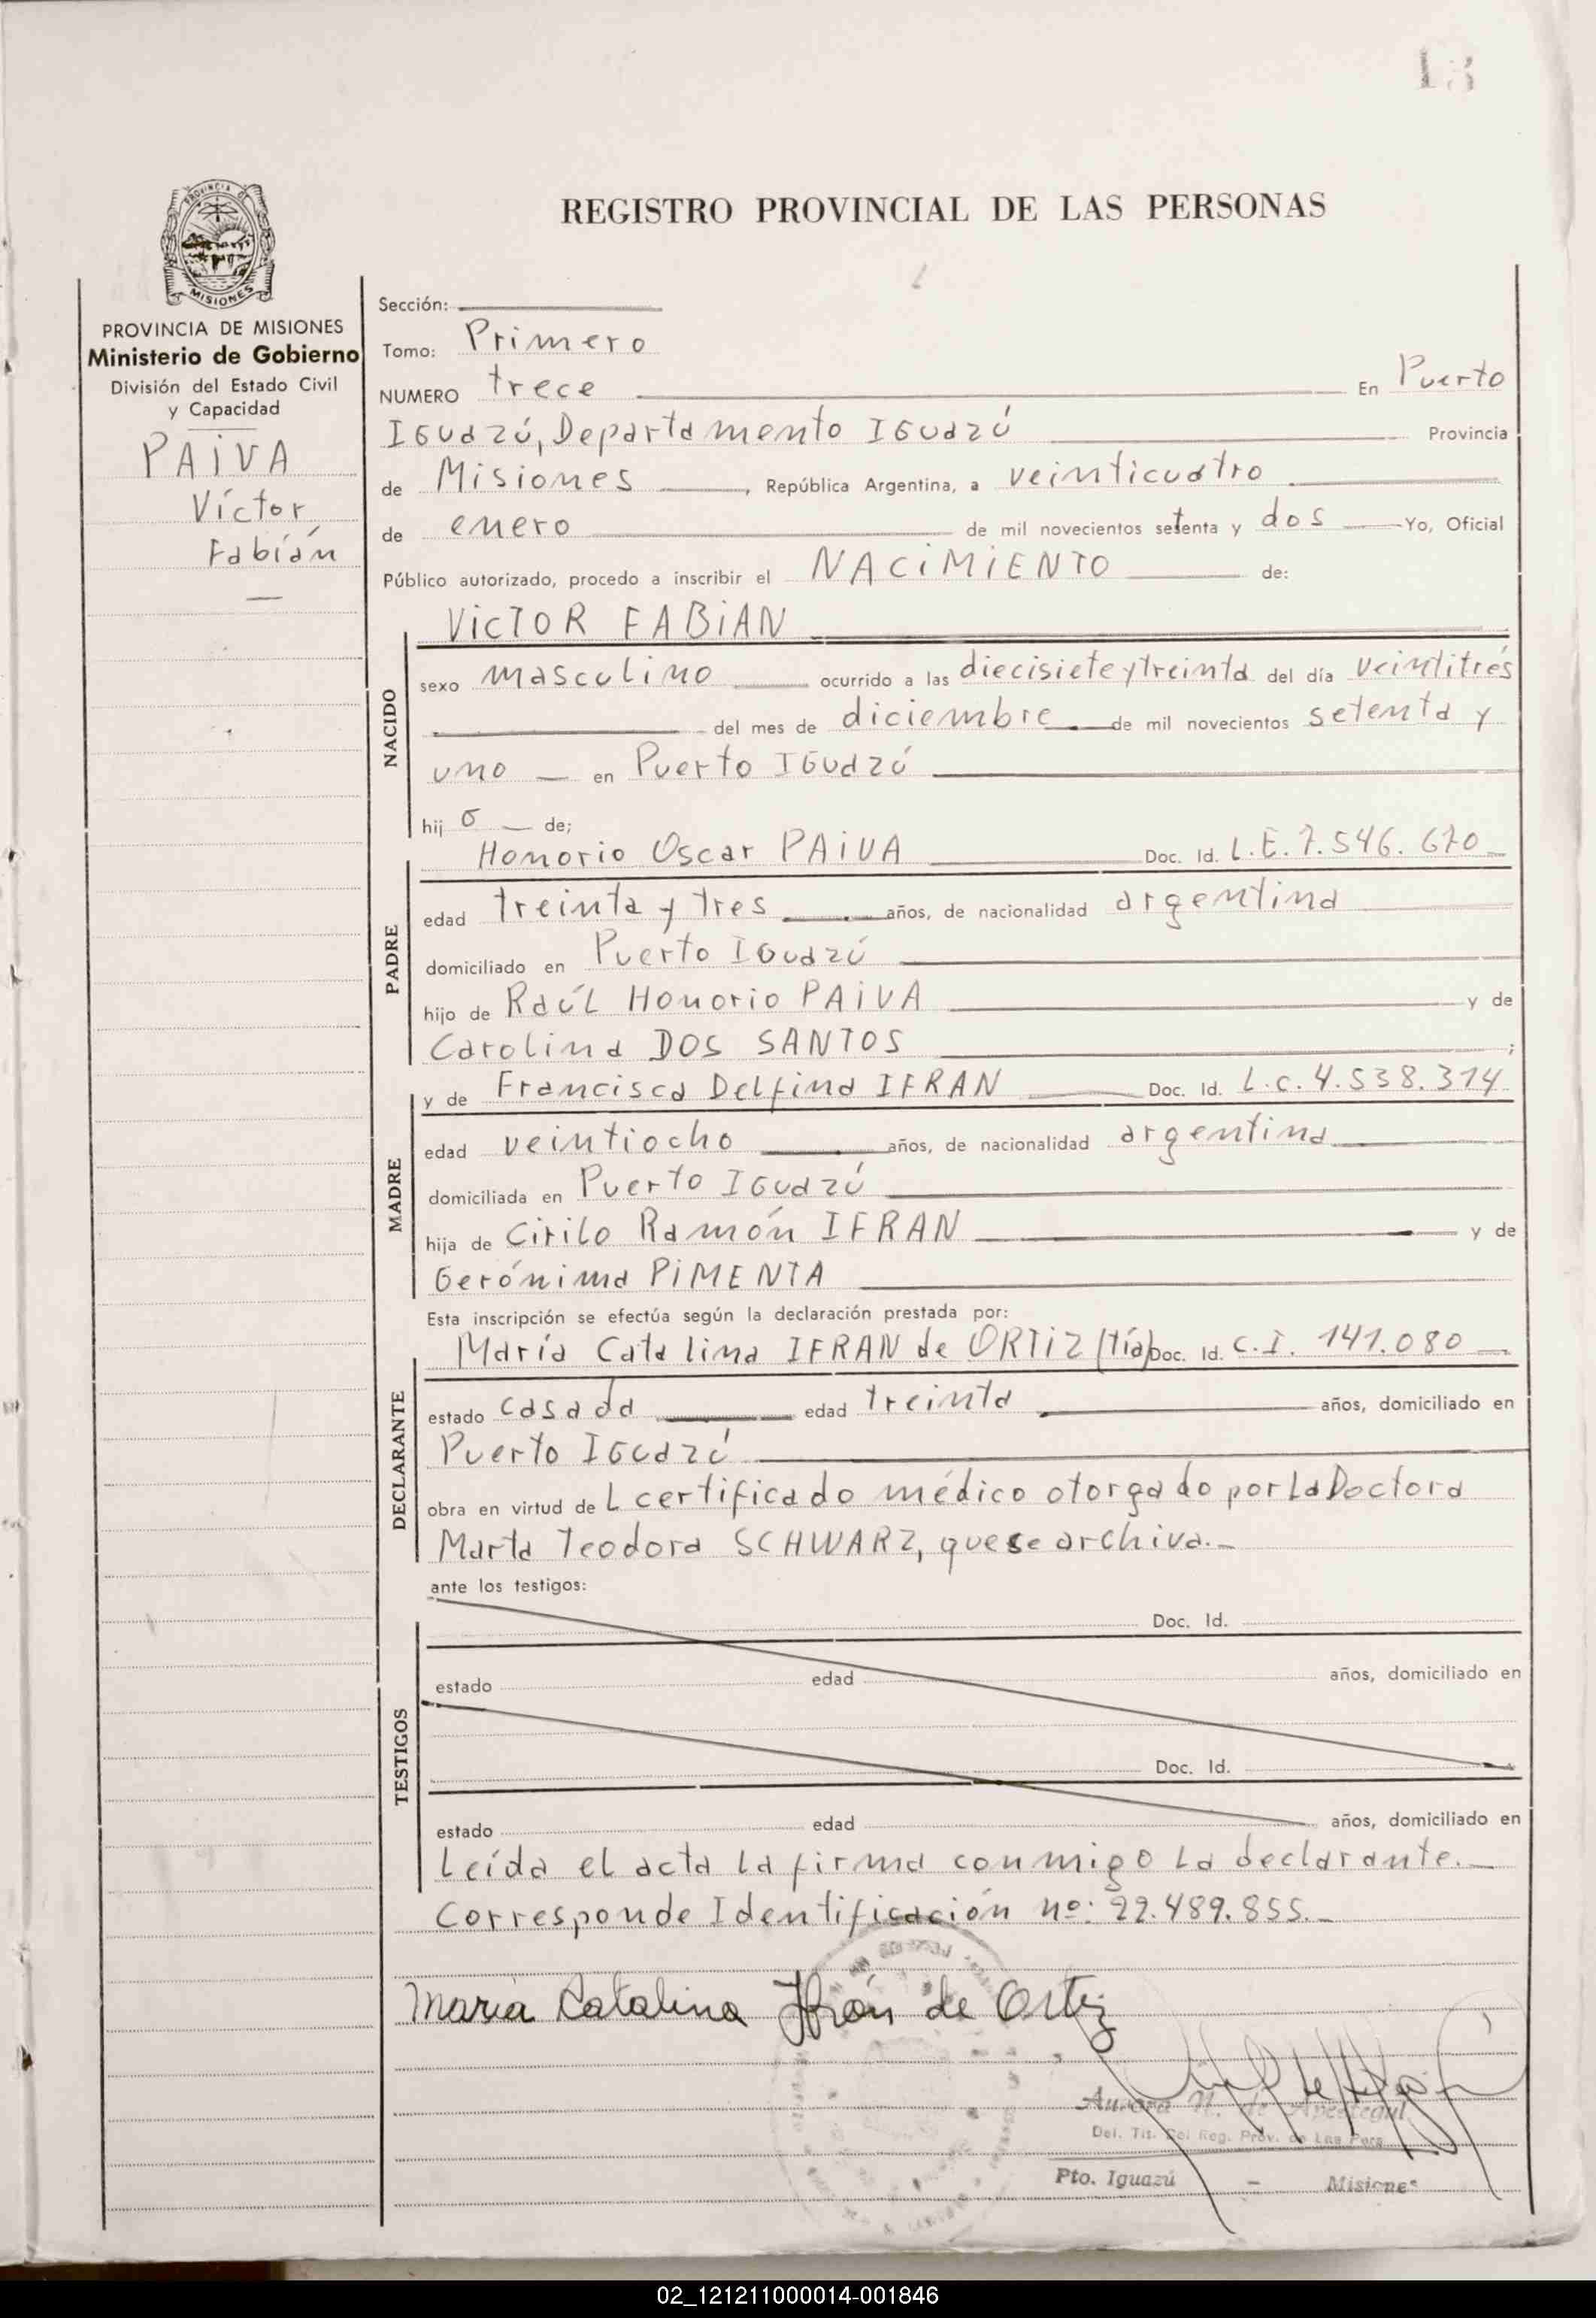 13
REGISTRO PROVINCIAL DE LAS PERSONAS
PROVINCIA DE MISIONES
Ministerio de Gobierno
División del Estado Civil
y Capacidad
PAIVA
Víctor
Fabián
Sección:
Tomo: Primero
NUMERO trece En Puerto
Iguazú, Departamento Iguazú Provincia
de Misiones, República Argentina, a veinticuatro
de enero de mil novecientos setenta y dos Yo, Oficial
Público autorizado, procedo a inscribir el NACIMIENTO de:
VICTOR FABIAN
NACIDO
sexo masculino ocurrido a las diecisiete y treinta del día veintitrés
del mes de diciembre de mil novecientos setenta y
uno en Puerto Iguazú
hij o de;
PADRE
Honorio Oscar PAIVA Doc. Id. L.E. 7.546.670
edad treinta y tres años, de nacionalidad argentina
domiciliado en Puerto Iguazú
hijo de Raúl Honorio PAIVA y de
Carolina DOS SANTOS ;
MADRE
y de Francisca Delfina IFRAN Doc. Id. L.C. 4.538.314
edad veintiocho años, de nacionalidad argentina
domiciliada en Puerto Iguazú
hija de Cirilo Ramón IFRAN y de
Gerónima PIMENTA
Esta inscripción se efectúa según la declaración prestada por:
DECLARANTE
María Catalina IFRAN de ORTIZ (tía) Doc. Id. C.I. 141.080
estado casada edad treinta años, domiciliado en
Puerto Iguazú
obra en virtud de L certificado médico otorgado por la Doctora
Marta Teodora SCHWARZ, que se archiva.-
ante los testigos:
TESTIGOS
Doc. Id.
estado edad años, domiciliado en
Doc. Id.
estado edad años, domiciliado en
Leída el acta la firma conmigo la declarante.-
Corresponde Identificación nº: 22.489.855.-
María Catalina Ifrán de Ortiz
Aurora N. de Apestegui
Del. Tit. del Reg. Prov. de Las Pers.
Pto. Iguazú - Misiones
02_121211000014-001846